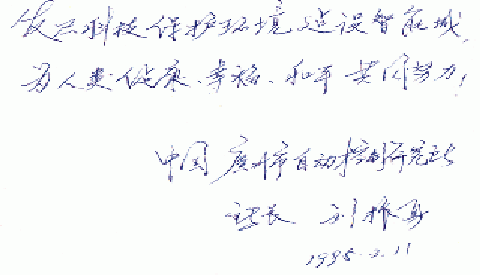 发展科技保护环境建设智能城
为人类健康、幸福、和平共同努力!
中国广州市自动控制研究所
所长 刘振
1998.2.11